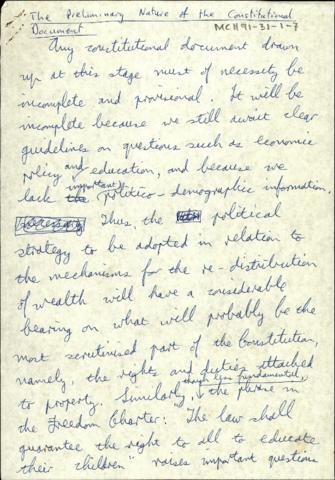 The Preliminary Nature of the Constitutional
Document
MCH91-31-1-7
Any constitutional document drawn
up at this stage must of necessity be
incomplete and provisional. It will be
incomplete because we still await clear
guidelines on questions such as economic
policy and education, and because we
lack important politico-demographic information.
Thus, the political
strategy to be adopted in relation to
the mechanisms for the re-distribution
of wealth will have a considerable
bearing on what will probably be the
most scrutinised part of the Constitution,
namely, the rights and duties attached
to property. Similarly, though less fundamental, the phrase in
the Freedom Charter: "The law shall
guarantee the right to all to educate
their children" raises important questions